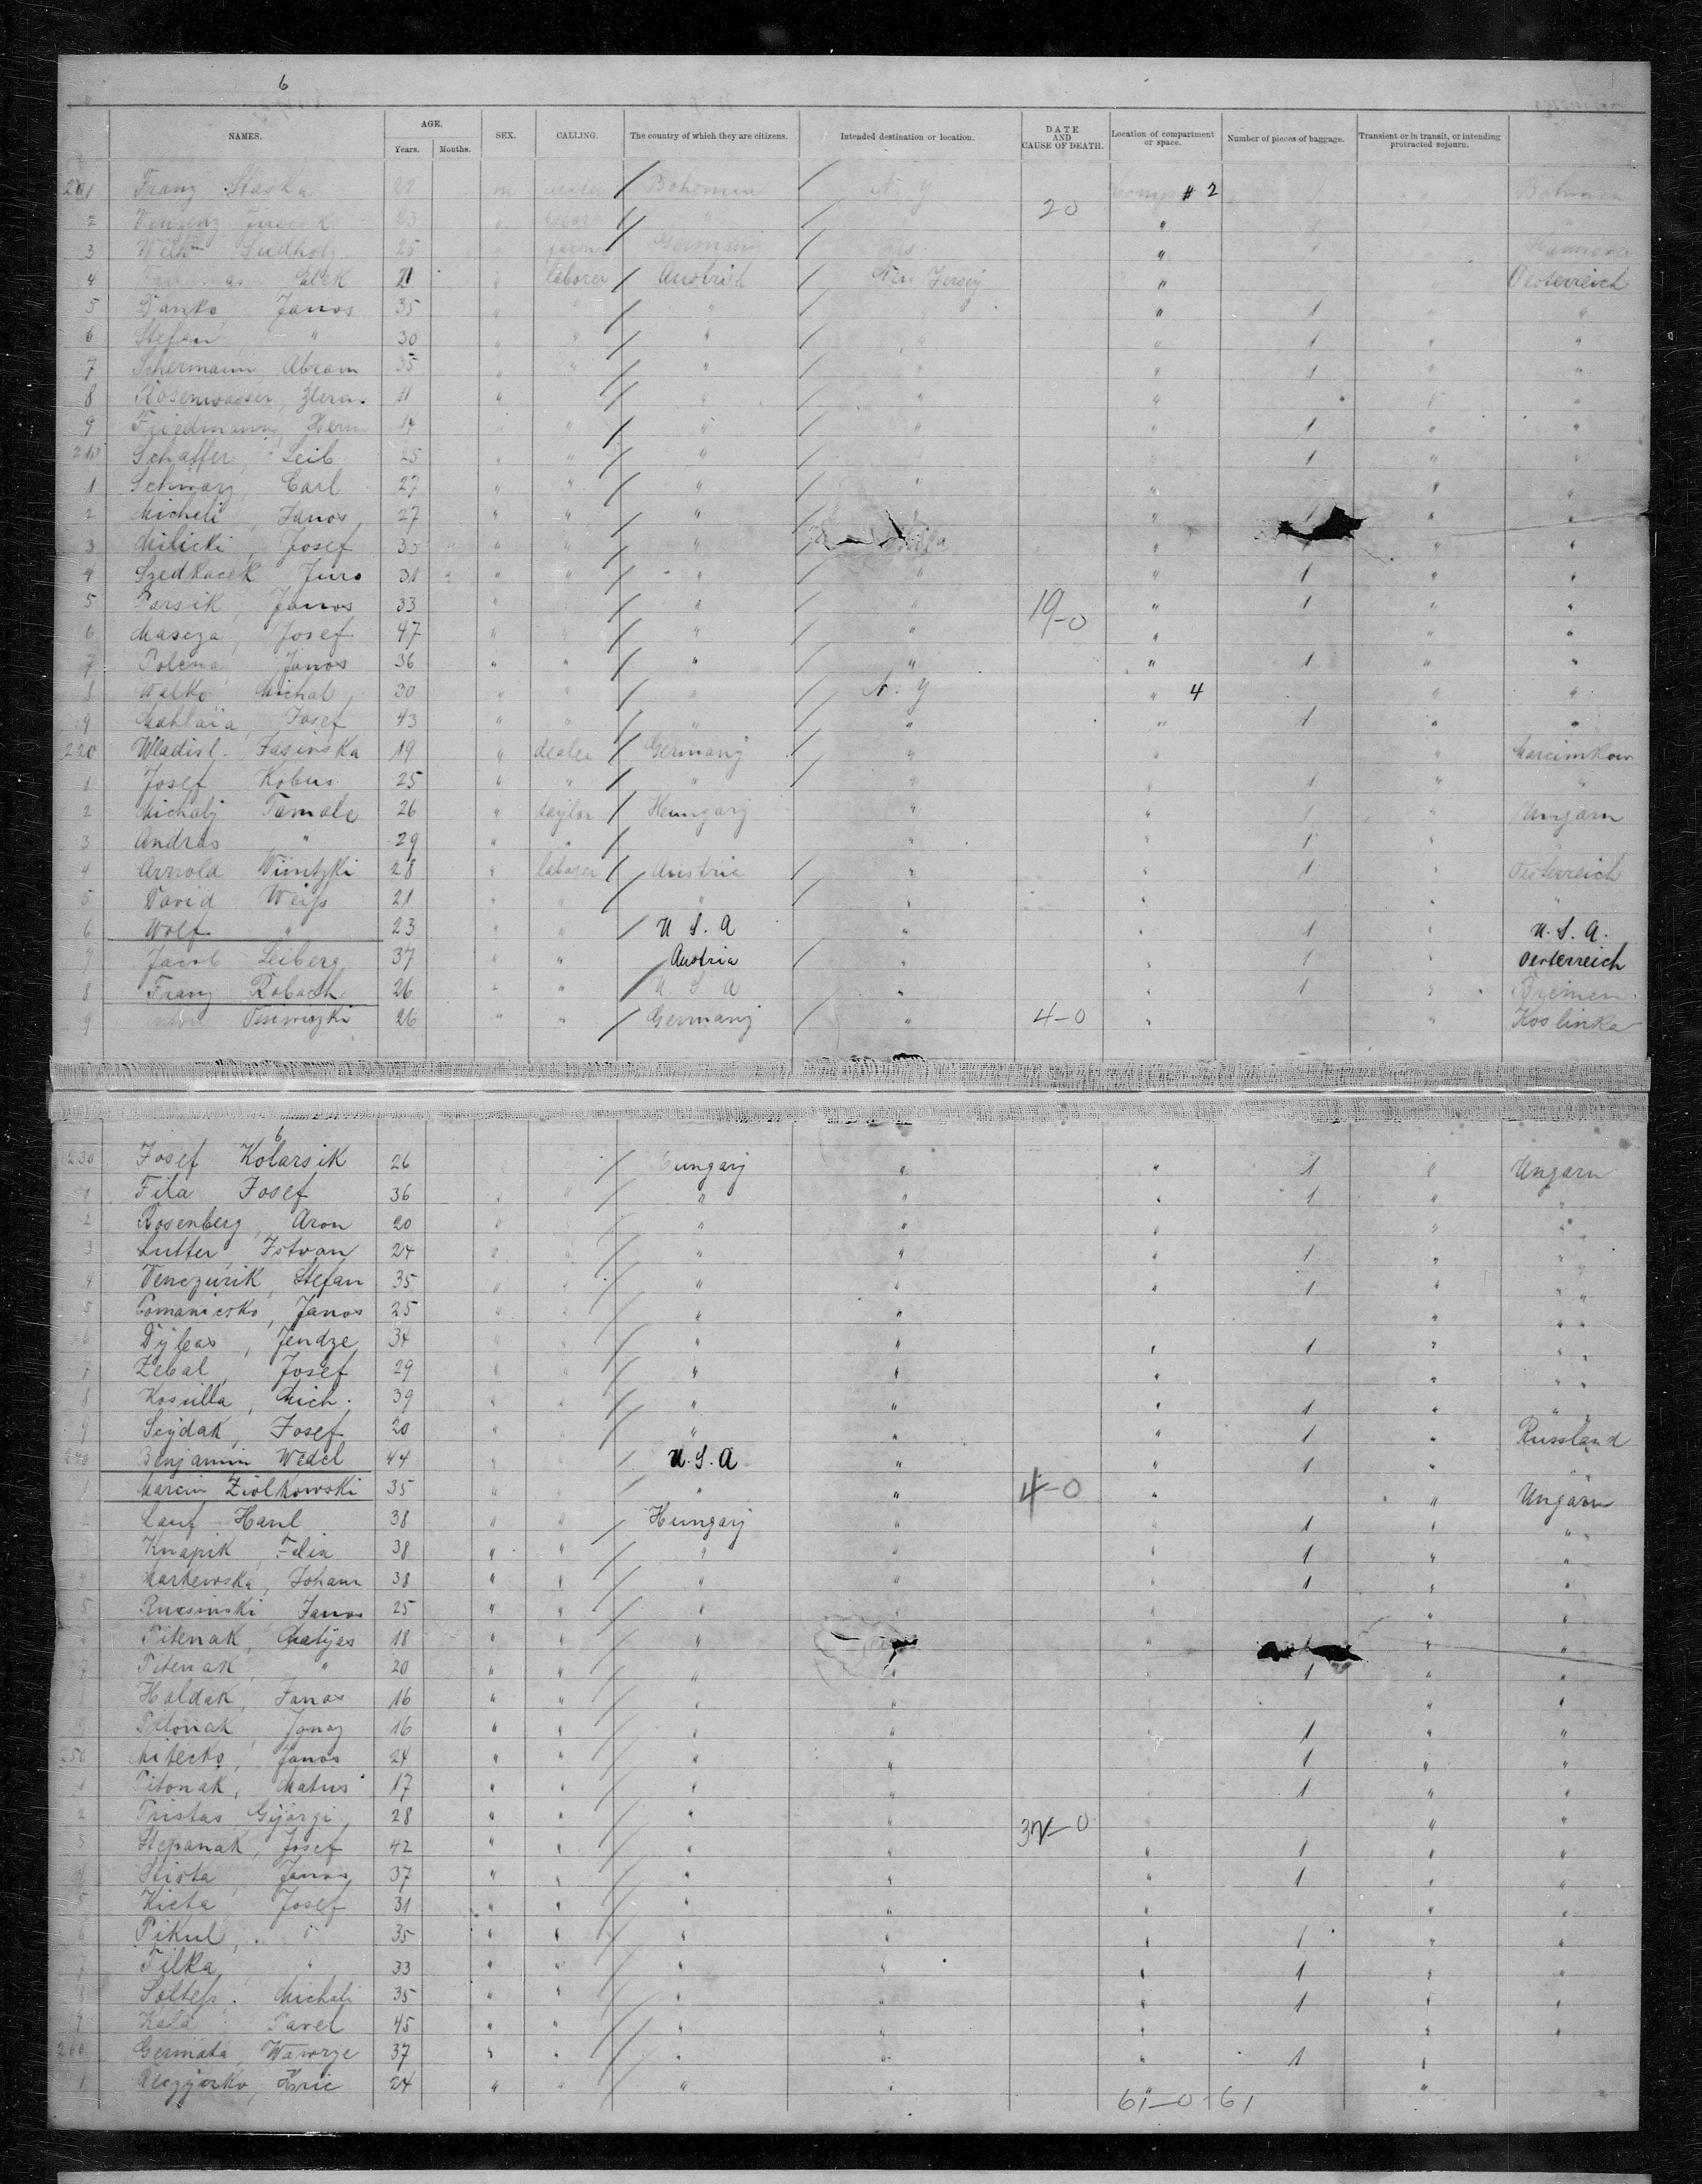 6
NAMES. AGE. Years. Months. SEX. CALLING. The country of which they are citizens. Intended destination or location. DATE AND CAUSE OF DEATH. Location of compartment or space. Number of pieces of baggage. Transient or in transit, or intending protracted sojourn.
201 Franz Staska 22 m dealer / Bohemia N. Y Comp # 2 1
2 23 laborer / " 20 "
3 Wilhm Sudholz 25 " farmer Germany " 1
4 Elek 21 " laborer / Austria / New Jersey " " Oesterreich
5 Danko Janos 35 " " / " / " 1 " "
6 Stefan " 30 " " / " / " " 1 " "
7 Schermann, Abram 35 " " / " / " " 1 " "
8 Rosenwasser, Herm. 11 " / " / " " " "
9 Friedmann, Herm 19 " " / " / " " 1 " "
210 Schaffer, Leib 25 " " / " / " 1 " "
1 Schwarz, Carl 27 " " / " / " " " "
2 Micheli, Janos, 27 " " / " / " 1 " "
3 Milicki, Josef 35 " " / " / " " "
4 Szedkacek Juro 31 " " / " / " " 1 " "
5 Parsik, Janos 33 " / " / " 19-0 " 1 " "
6 Mascza, Josef 47 " " / " / " " " "
7 Polena, Janos 36 " " / " / " " 1 " "
8 Walko Michal, 30 " " / " / N. Y " 4 " "
9 Mahlaia, Josef 43 " " / " / " " 1 " "
220 Wladisl. Jasinska 19 " dealer / Germany / " " " Marcimkow
1 Josef Kobus 25 " " / " / " " 1 " "
2 Michalj Tamale 26 " taylor / Hungarij " " 1 " Ungarn
3 Andras " 29 " " / " " " 1 "
4 Arnold Wuntzki 28 " laborer / Austria / " " 1 " Oesterreich
5 David Weiss 21 " " / " / " " "
6 Wolf " 23 " " / U S. A " " 1 " U. S. A.
7 Jacob Leiberg 37 " " / Austria / " " 1 " Oesterreich
8 Franz Robach 26 " " / U. S A " " 1 " Bremen
9 26 " " / Germany " 4-0 " " Koslinka
6
230 Josef Kolarsik 26 / Hungarij " " 1 " Ungarn
1 Fila Josef 36 " " / " " " 1 " "
2 Rosenberg, Aron 20 " " / " " " " "
3 Lutter, Istvan 24 " " / " " " 1 " "
4 Venczurik, Stefan 35 " " / " " " 1 " "
5 Pomanicsko, Janos 25 " " / " " " "
6 Dyleas, Jendze, 34 " " / " " " 1 " "
7 Zebal, Josef 29 " " / " " " " "
8 Kosulla, Mich. 39 " " / " " " 1 " "
9 Sojdak, Josef 20 " " / " " " 1 " Russland
240 Benjamin Wedel 44 " " / U. S. A " " 1 " "
1 Marcin Ziolkowski 35 " " / " " 4-0 " " Ungarn
2 Lauf Hanl 38 " " / Hungarij " " 1 " "
3 Knapik, Felia 38 " " / " " " 1 " "
4 Markewska, Johann 38 " " / " " " 1 " "
5 Rucsinski Janos 25 " " / " " " " "
6 Pitenak, Matijas 18 " " / " " " "
7 Pitenak, " 20 " " / " " " 1 " "
8 Haldak, Janos 16 " " / " " " " "
9 Pitonak, Ignaz 16 " " / " " " 1 " "
250 Mitecko, Janos 24 " " / " " 1 " "
1 Pitonak, Matus 17 " " / " " 1 " "
2 Tristas, Gijorgi 28 " " / " " 32-0 " "
3 Stepanak, Josef 42 " " / " " " 1 " "
4 Stista, Janos 37 " " / " " " 1 " "
5 Kicta, Josef 31 " " / " " " " "
6 Pikul, " 35 " " / " " " 1 " "
7 Filka, " 33 " " / " " " 1 " "
8 Soltess, Michali 35 " " / " " " 1 " "
9 Kala Pavel 45 " " / " " " " "
260 Germata, Wawrze 37 " " / " " " 1 "
1 24 " " / " " " "
61-0-61